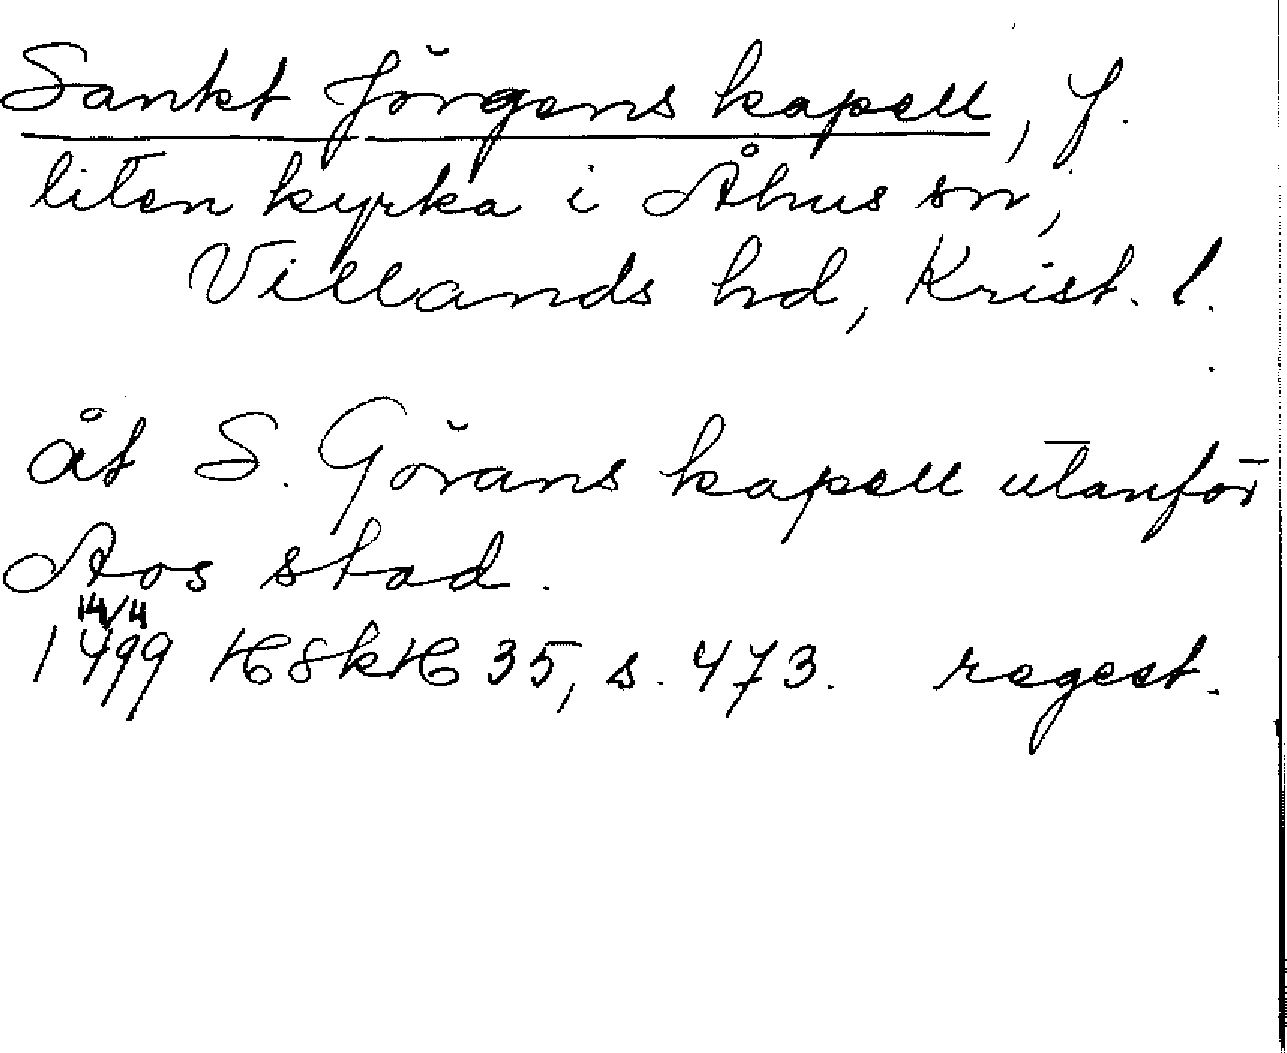 Sankt Jörgens kapell, f.
liten kyrka i Åhus sn,
Villands hd, Krist. l.
åt S. Görans kapell utanför
Aos stad.
14/4
1499 HSkH 35, s. 473. regest.